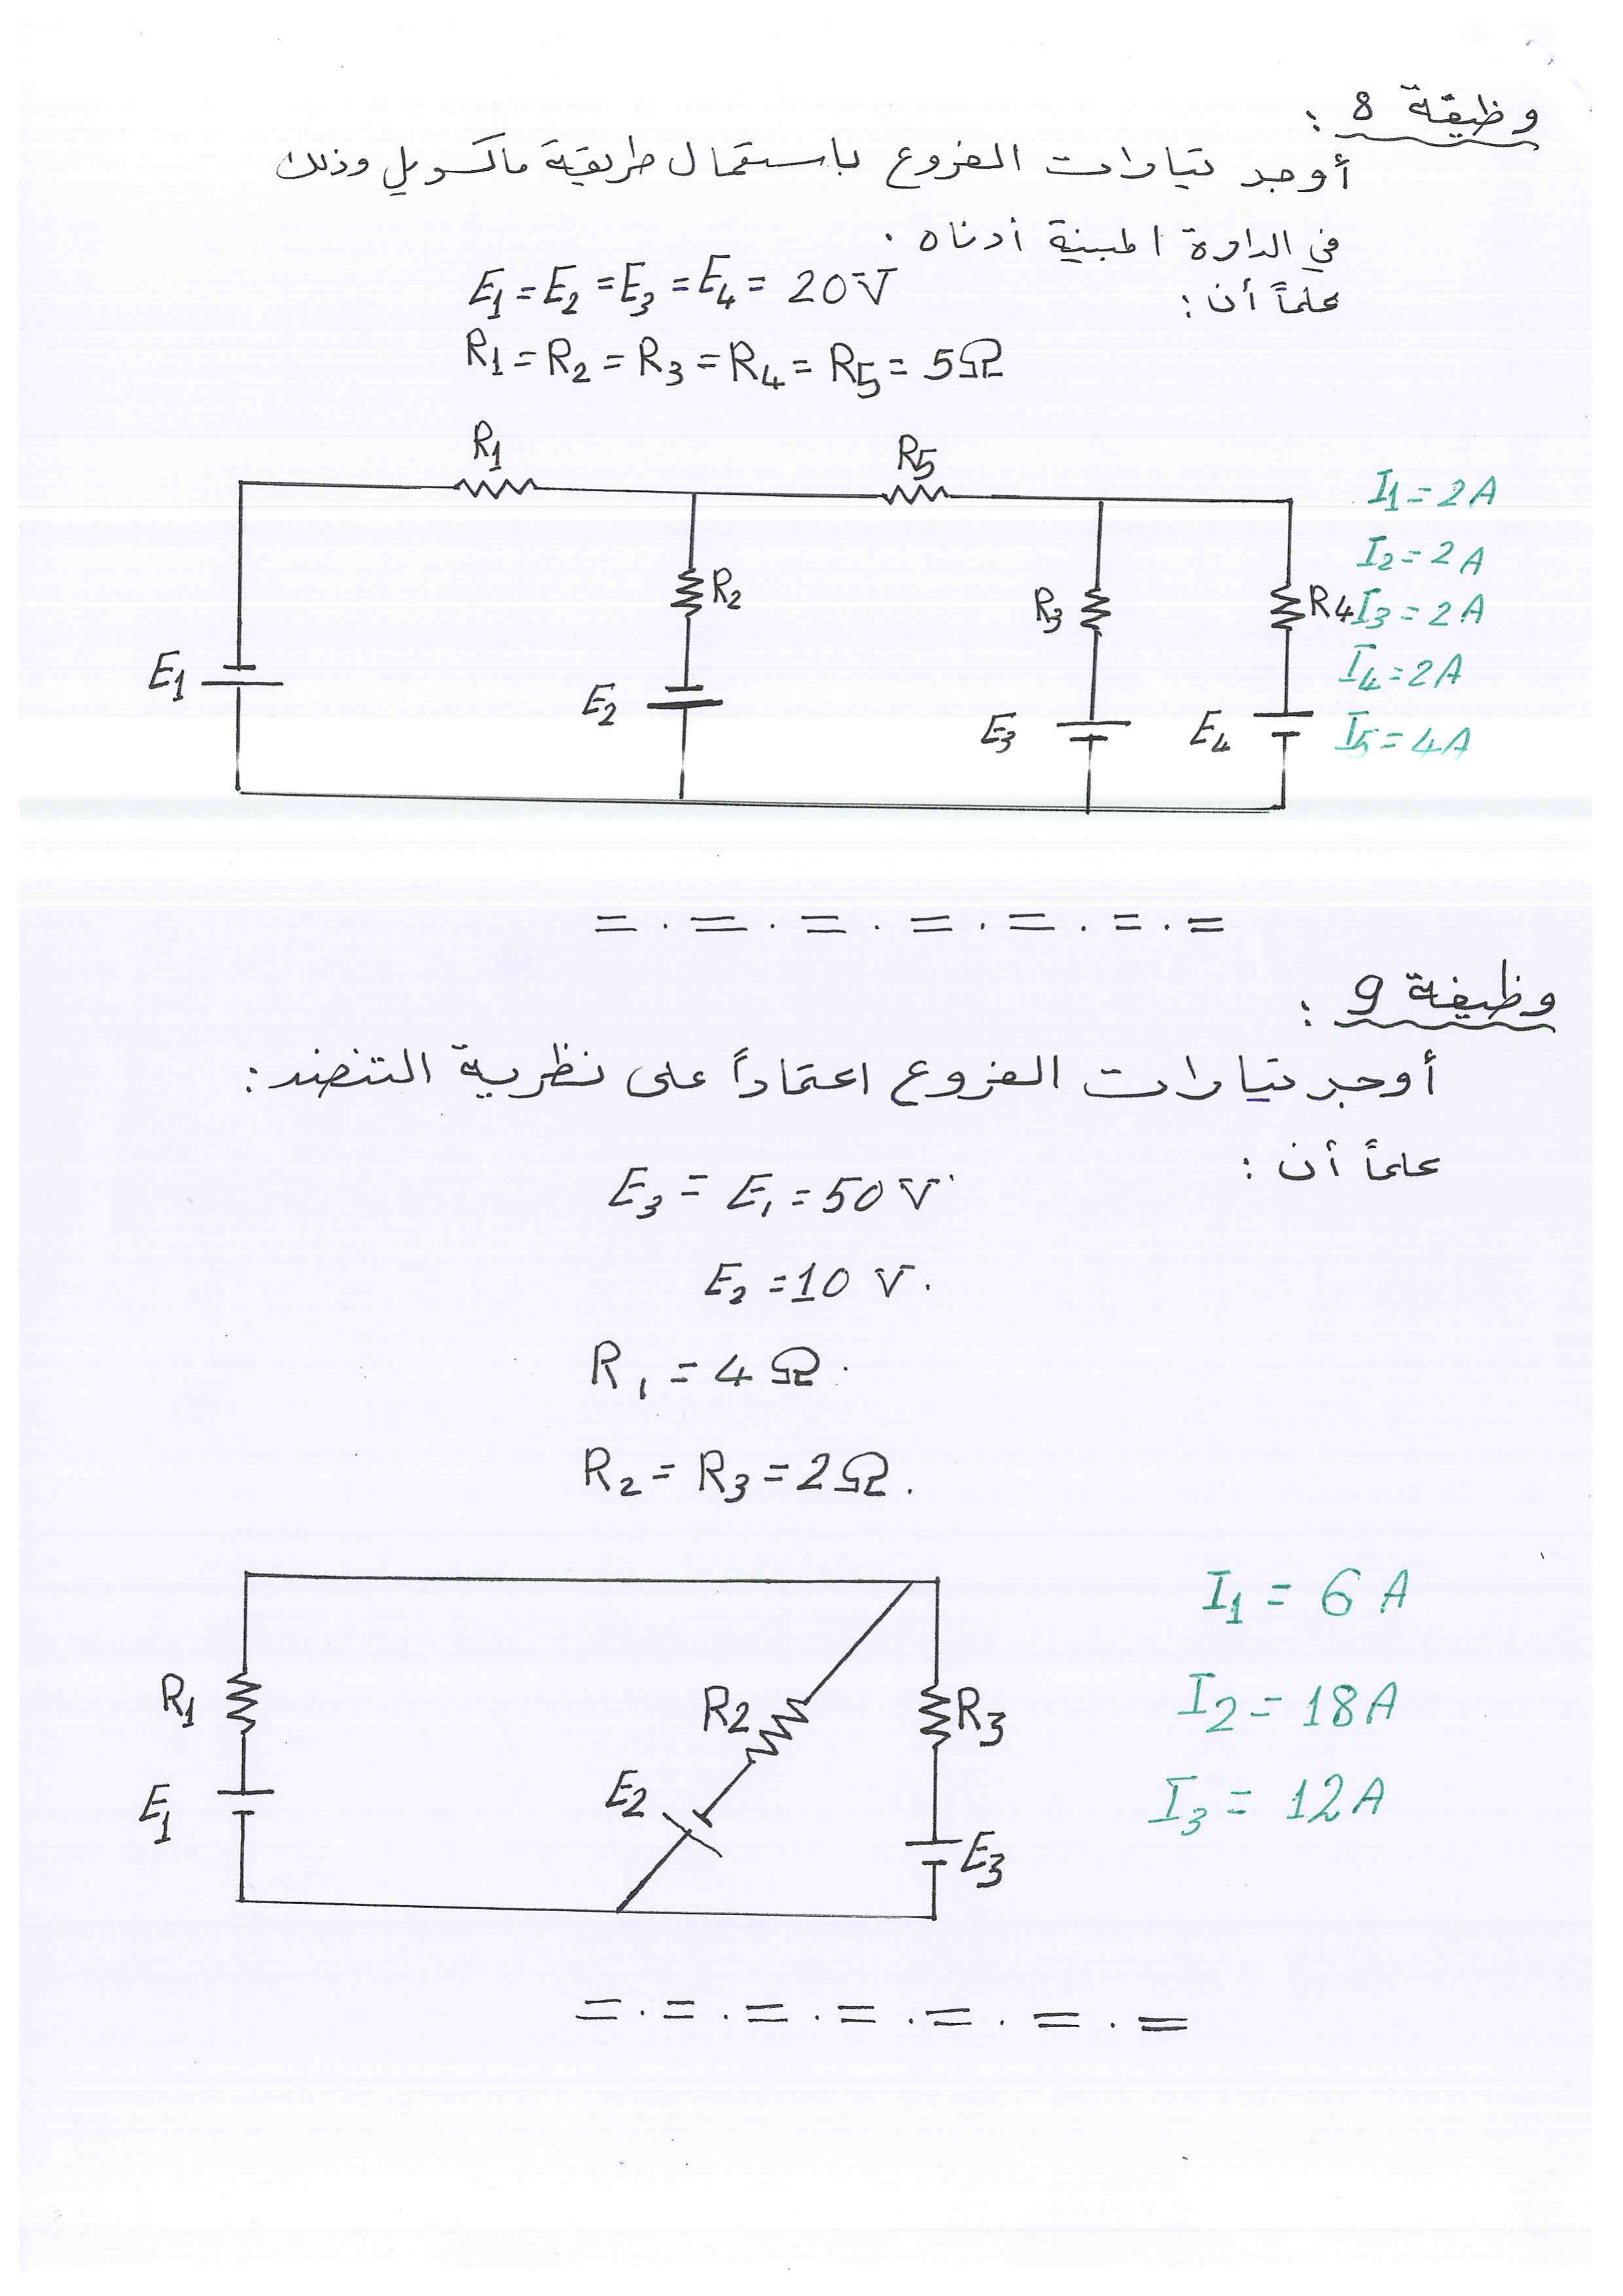 وظيفة 8 :
أوجد تيارات الفروع باستعمال طريقة ماكسويل وذلك
في الدارة المبينة أدناه .
علماً أن :
E1 = E2 = E3 = E4 = 20V
R1 = R2 = R3 = R4 = R5 = 5Ω
R1
R5
I1 = 2A
I2 = 2A
R2
R3
R4
I3 = 2A
E1
E2
I4 = 2A
E3
E4
I5 = 4A
= . = . = . = . = . = . =
وظيفة 9 :
أوجد تيارات الفروع اعتماداً على نظرية التنضد :
علماً أن :
E3 = E1 = 50 V
E2 = 10 V.
R1 = 4 Ω.
R2 = R3 = 2Ω.
I1 = 6 A
R1
R2
R3
I2 = 18A
E1
E2
E3
I3 = 12A
= . = . = . = . = . = . =